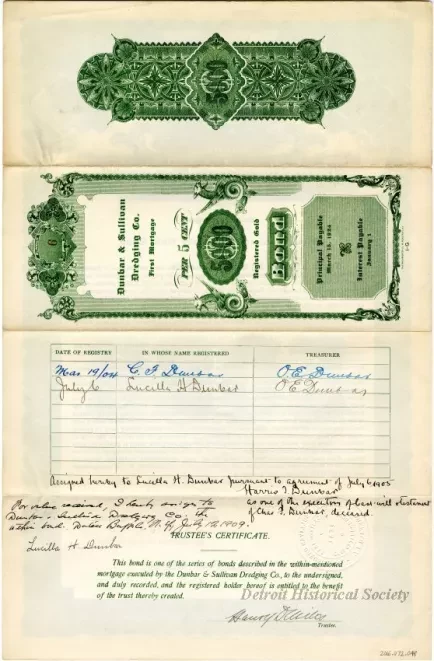 5000
6
Dunbar & Sullivan
Dredging Co.
First Mortgage
5 PER CENT
5000
Registered Gold
Bond
Principal Payable
March 15, 1924
Interest Payable
January 1
DATE OF REGISTRY IN WHOSE NAME REGISTERED TREASURER
Mar 19/04 C. F. Dunbar O.E. Dunbar
July 6 Lucilla H Dunbar O E Dunbar
Assigned hereby to Lucilla H. Dunbar pursuant to agreement of July 6 1905
Harris T. Dunbar
as one of the executors of last will & testament
of Chas F. Dunbar, deceased.
For value received, I hereby assign to
Dunbar & Sullivan Dredging Co. the
within bond. Dated Buffalo, N.Y. July 1909.
Lucilla H. Dunbar
TRUSTEE'S CERTIFICATE.
This bond is one of the series of bonds described in the within-mentioned
mortgage executed by the Dunbar & Sullivan Dredging Co., to the undersigned,
and duly recorded, and the registered holder hereof is entitled to the benefit
of the trust thereby created.
Detroit Historical Society
Henry
Trustee.